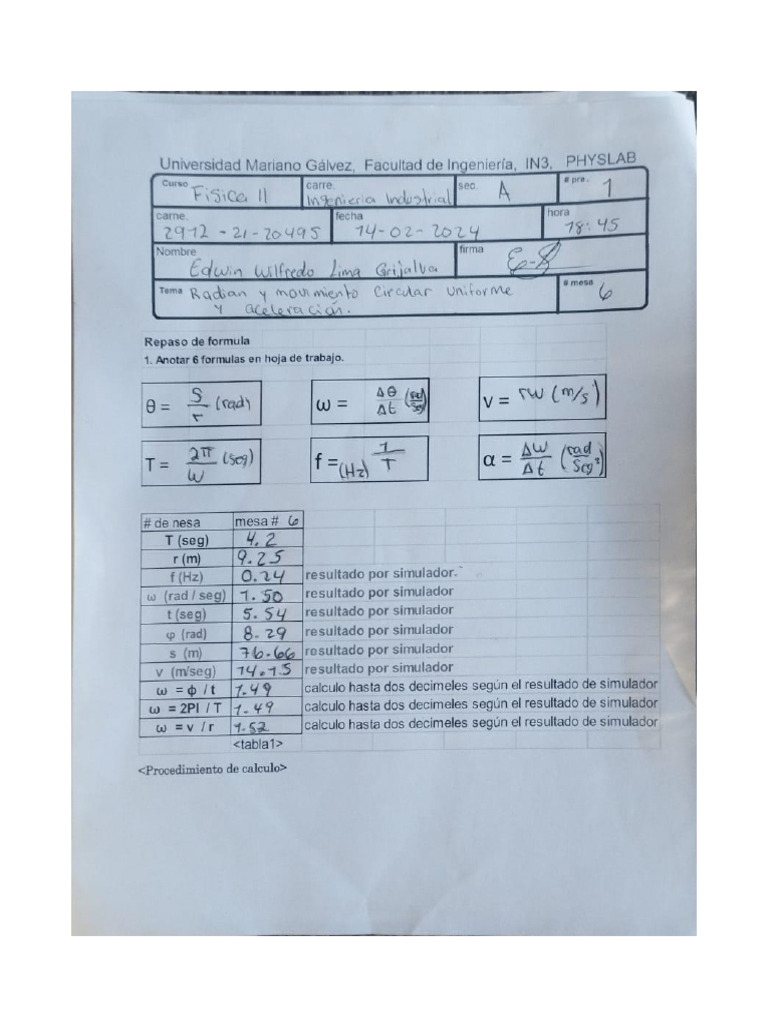 Universidad Mariano Gálvez, Facultad de Ingeniería, IN3, PHYSLAB
Curso Fisica II carre. Ingenieria Industrial sec. A # pra. 1
carne. 2912-21-20495 fecha 14-02-2024 hora 18:45
Nombre Edwin Wilfredo Lima Grijalva firma
Tema Radian y movimiento Circular uniforme # mesa 6
y aceleración.
Repaso de formula
1. Anotar 6 formulas en hoja de trabajo.
θ = S/r (rad) ω = Δθ/Δt (rad/seg) v = rw (m/s)
T = 2π/w (seg) f = (Hz) 1/T α = Δw/Δt (rad/seg²)
# de nesa mesa # 6
T (seg) 4.2
r (m) 9.25
f (Hz) 0.24 resultado por simulador.
ω (rad / seg) 1.50 resultado por simulador
t (seg) 5.54 resultado por simulador
φ (rad) 8.29 resultado por simulador
s (m) 76.66 resultado por simulador
v (m/seg) 14.15 resultado por simulador
ω = ϕ / t 1.49 calculo hasta dos decimeles según el resultado de simulador
ω = 2PI / T 1.49 calculo hasta dos decimeles según el resultado de simulador
ω = v / r 1.52 calculo hasta dos decimeles según el resultado de simulador
<tabla1>
<Procedimiento de calculo>